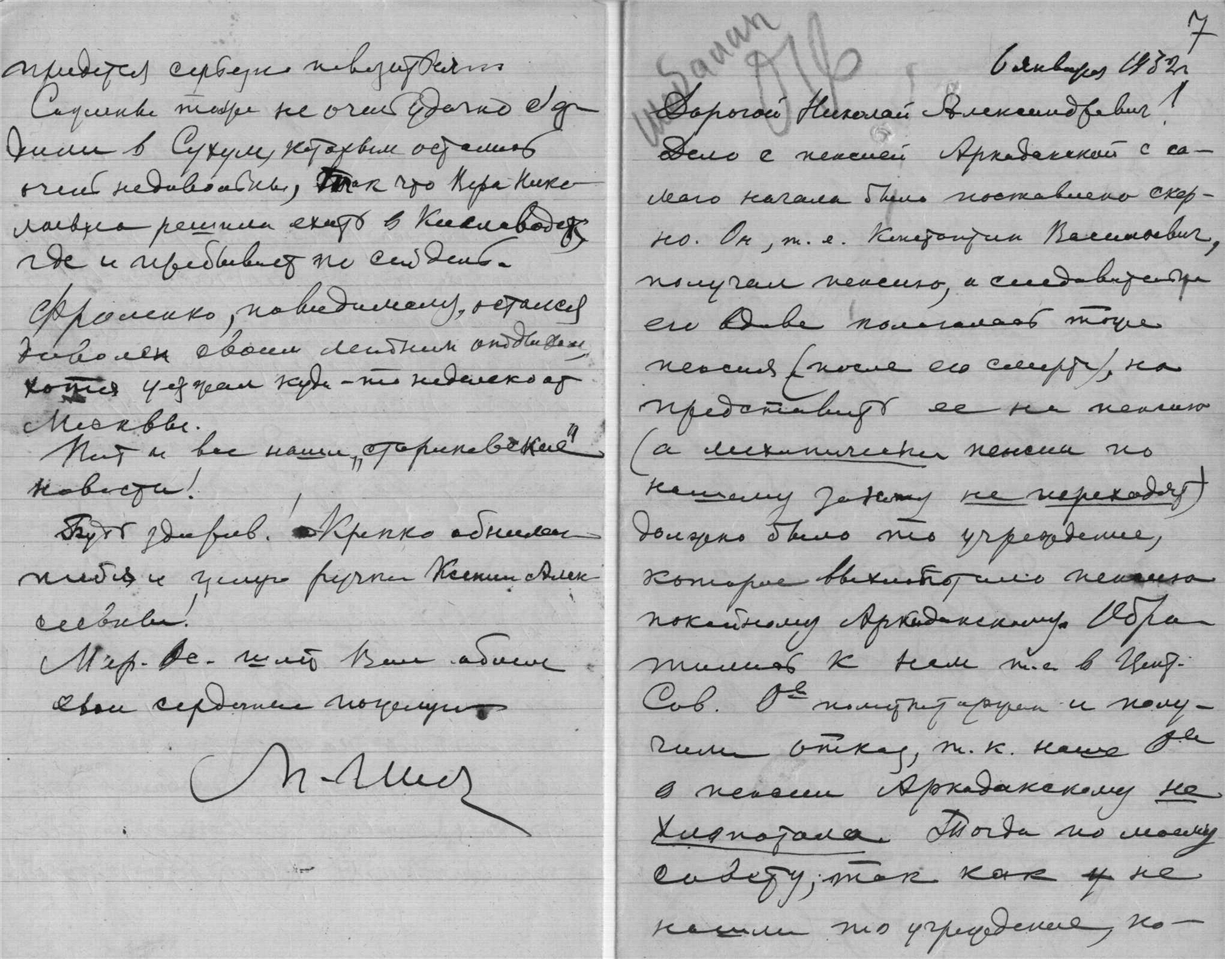 7
6 января 1932 г.
Дорогой Николай Александрович!
Дело с пенсией Аркаданской с са-
мого начала было поставлено сквер-
но. Он, т. е. Константин Васильевич,
получал пенсию, а следовательно
его вдове полагалась тоже
пенсия (после его смерти), но
представить ее на пенсию
(а механически пенсии по
нашему закону не переходят)
должно было то учреждение,
которое выхлопотало пенсию
покойному Аркаданскому. Обра-
тились к нам т. е. в Цент.
Сов. О-ва политкаторжан и полу-
чили отказ, т. к. наше О-во
о пенсии Аркаданскому не
хлопотало. Тогда по моему
совету, так как не
нашли то учреждение, ко-
придется серьезно повозиться
тоже не очень удачно
в Сухум, которым остались
очень недовольны, так что Вера Нико-
лаевна решила ехать в Кисловодск,
где и пребывает по сей день.
Фроленко, повидимому, остался
доволен своим летним отдыхом,
хотя уезжал куда-то недалеко от
Москвы.
Вот и все наши „стариковские"
новости!
Будь здоров! Крепко обнимаю
тебя и целую ручки Ксении Алек-
сеевны!
шлет Вам обоим
свои сердечные поцелуи